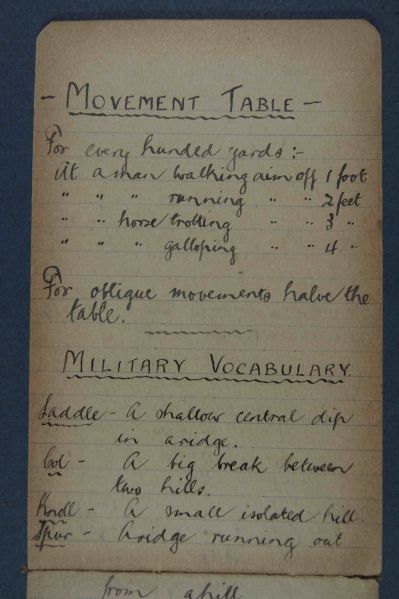 - MOVEMENT TABLE -
For every hunded yards :-
At a man walking aim off 1 foot
" " " running " " 2 feet
" " horse trotting " " 3 "
" " " galloping " " 4 "
For oblique movements halve the
table.
MILITARY VOCABULARY
Saddle - A shallow central dip
in a ridge.
Col - A big break between
two hills.
Knoll - A small isolated hill
Spur - A ridge running out
from a hill